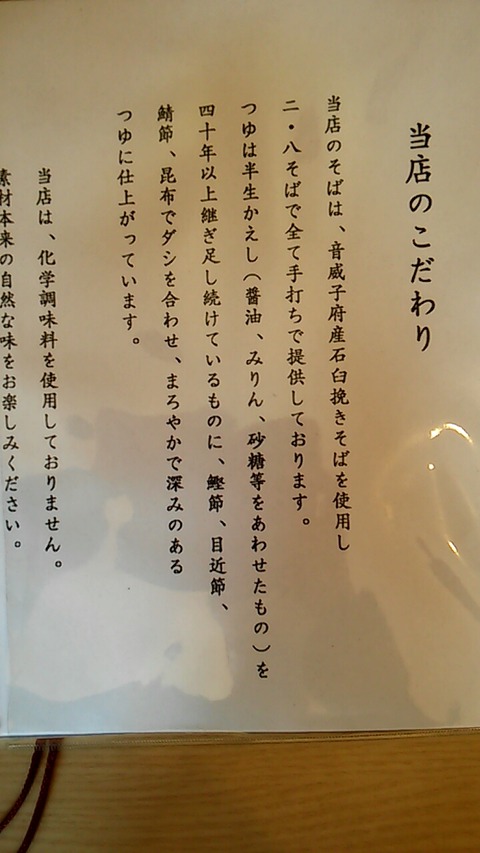 当店のこだわり
当店のそばは、音威子府産石臼挽きそばを使用し
二・八そばで全て手打ちで提供しております。
つゆは半生かえし（醬油、みりん、砂糖等をあわせたもの）を
四十年以上継ぎ足し続けているものに、鰹節、目近節、
鯖節、昆布でダシを合わせ、まろやかで深みのある
つゆに仕上がっています。
当店は、化学調味料を使用しておりません。
素材本来の自然な味をお楽しみください。